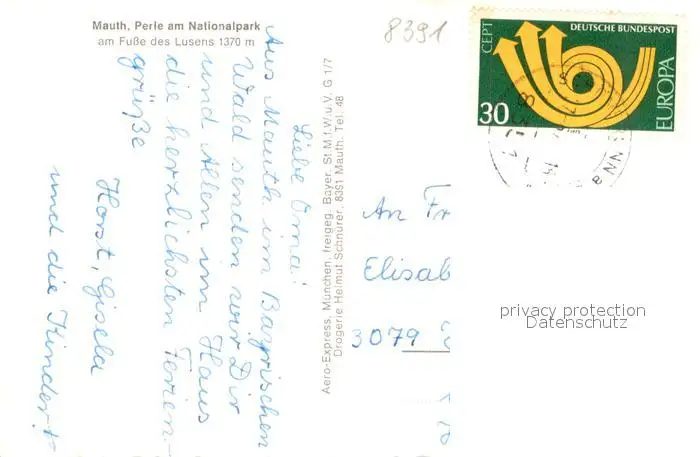 Mauth, Perle am Nationalpark
am Fuße des Lusens 1370 m
8391
CEPT
DEUTSCHE BUNDESPOST
30
EUROPA
Liebe Oma!
Aus Mauth im Bayrischen
Wald senden wir Dir
und Allen im Haus
die herzlichsten Ferien-
grüße
Horst, Gisela
und die Kinder!
Aero-Express, München, freigeg. Bayer. St.M.f.W.u.V. G 1/7
Drogerie Helmut Schnürer, 8391 Mauth, Tel. 48
An Fr
Elisab
3079
privacy protection
Datenschutz